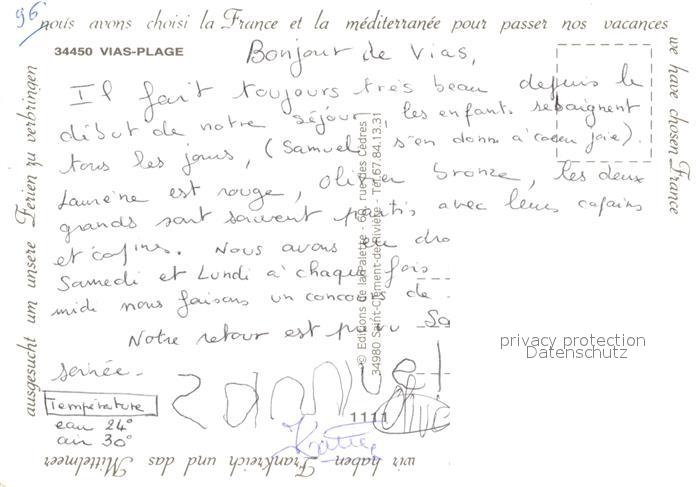 96
nous avons choisi la France et la méditerranée pour passer nos vacances
we have chosen France
34450 VIAS-PLAGE
Bonjour de Vias,
Il fait toujours très beau depuis le
début de notre séjour, les enfants se baignent
tous les jours, (Samuel s'en donne à coeur joie).
Laureine est rouge, Olivier bronze, les deux
grands sont souvent partis avec leurs copains
et copines. Nous avons eu dro
Samedi et Lundi à chaque fois
midi nous faisons un concours de
Notre retour est prévu Sa
soirée.
Samuel
Température
eau 24°
air 30°
1111
© Editions de la Palette - 69, rue des Cèdres
34980 Saint-Clément-de-Rivière - Tél. 67.84.13.31
privacy protection
Datenschutz
wir haben Frankreich und das Mittelmeer
ausgesucht um unsere Ferien zu verbringen